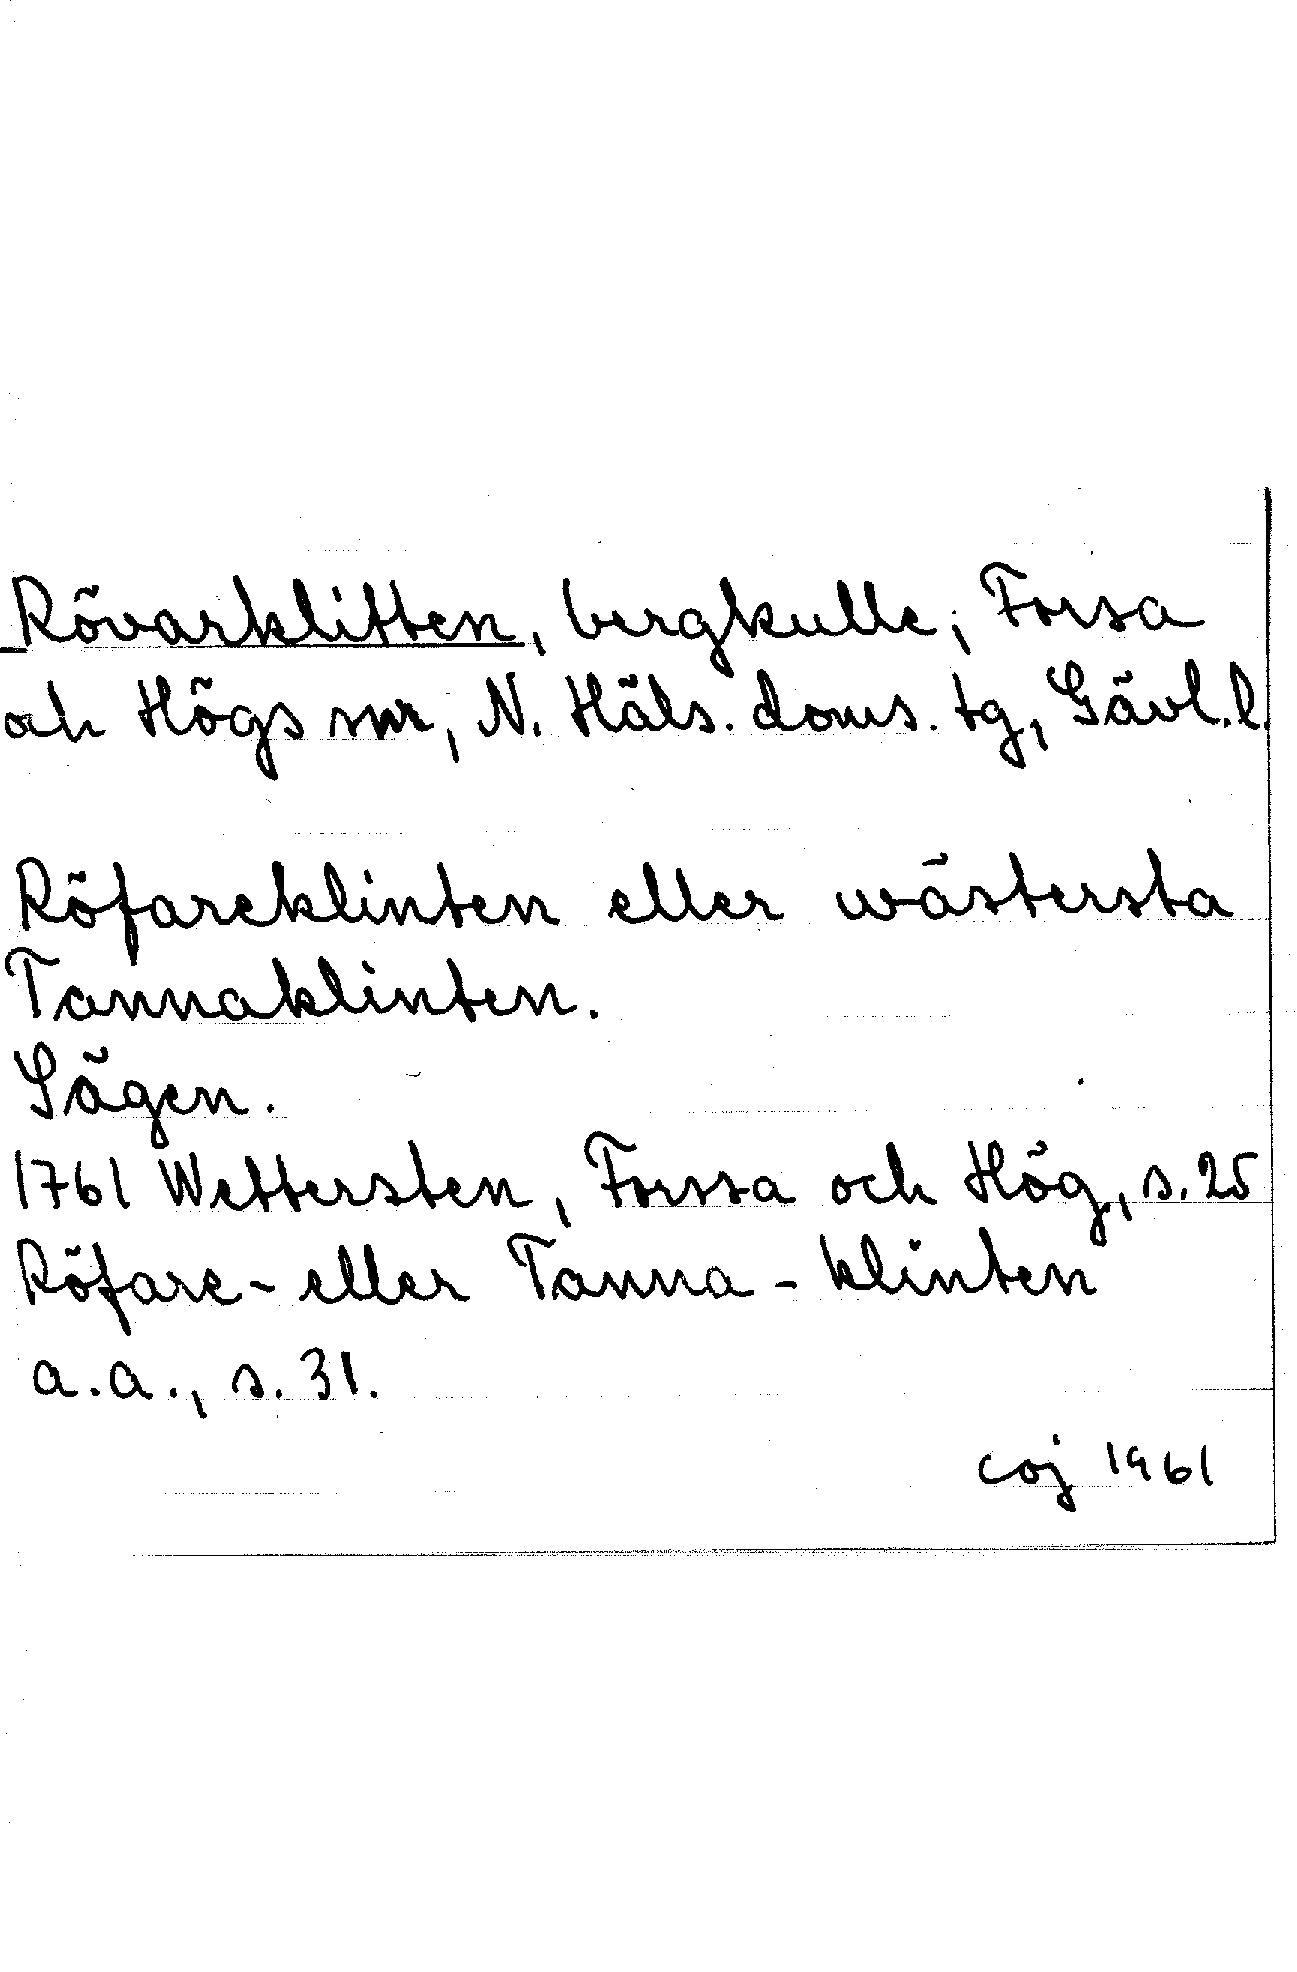 Rövarklitten, bergkulle; Forsa
och Högs snr, N. Häls. doms. tg, Gävl. l.
Röfareklinten eller wästersta
Tannaklinten.
Sägen.
1761 Wettersten, Forssa och Hög, s. 25
Röfare- eller Tanna-klinten
a.a., s. 31.
coj 1961